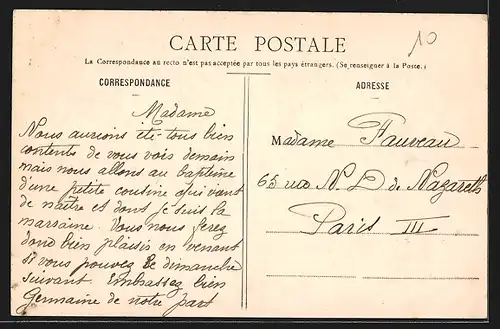 10
CARTE POSTALE
La Correspondance au recto n'est pas acceptée par tous les pays étrangers. (Se renseigner à la Poste.)
CORRESPONDANCE
ADRESSE
Madame
Nous aurions été tous bien
contents de vous vois demain
mais nous allons au baptême
d'une petite cousine qui vient
de naître et dont je suis la
marraine. Vous nous ferez
donc bien plaisir en venant
si vous pouvez le dimanche
suivant. Embrassez bien
Germaine de notre part
Madame Fauveau
65 rue N. D de Nazareth
Paris III